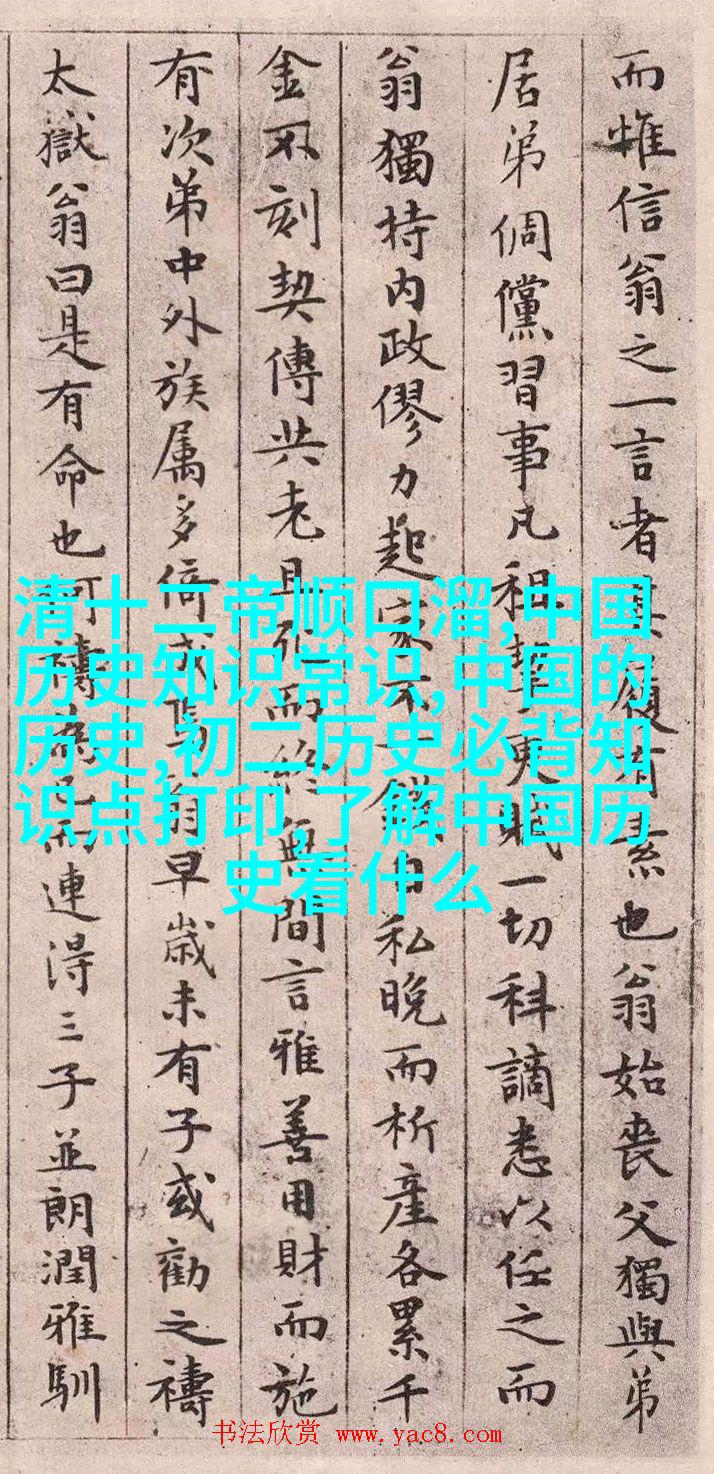 而惟信翁之一言者其履有素也翁始喪父獨與弟
居弟倜儻習事凡租挈更賦一切科謫悉以任之而
翁獨持内政僇力起家不一錢自私晚而析產各累千
金不刻契傳共老且死而終無間言雅善用財而施
有次弟中外族属多倚成焉翁早歲未有子或勸之禱
太嶽翁曰是有命也可禱而連得三子並朗潤雅馴
清十二帝顺口溜,中国
历史知识常识,中国的
历史,初二历史必背知
识点打印,了解中国历
史看什么
书法欣赏 www.yac8.com